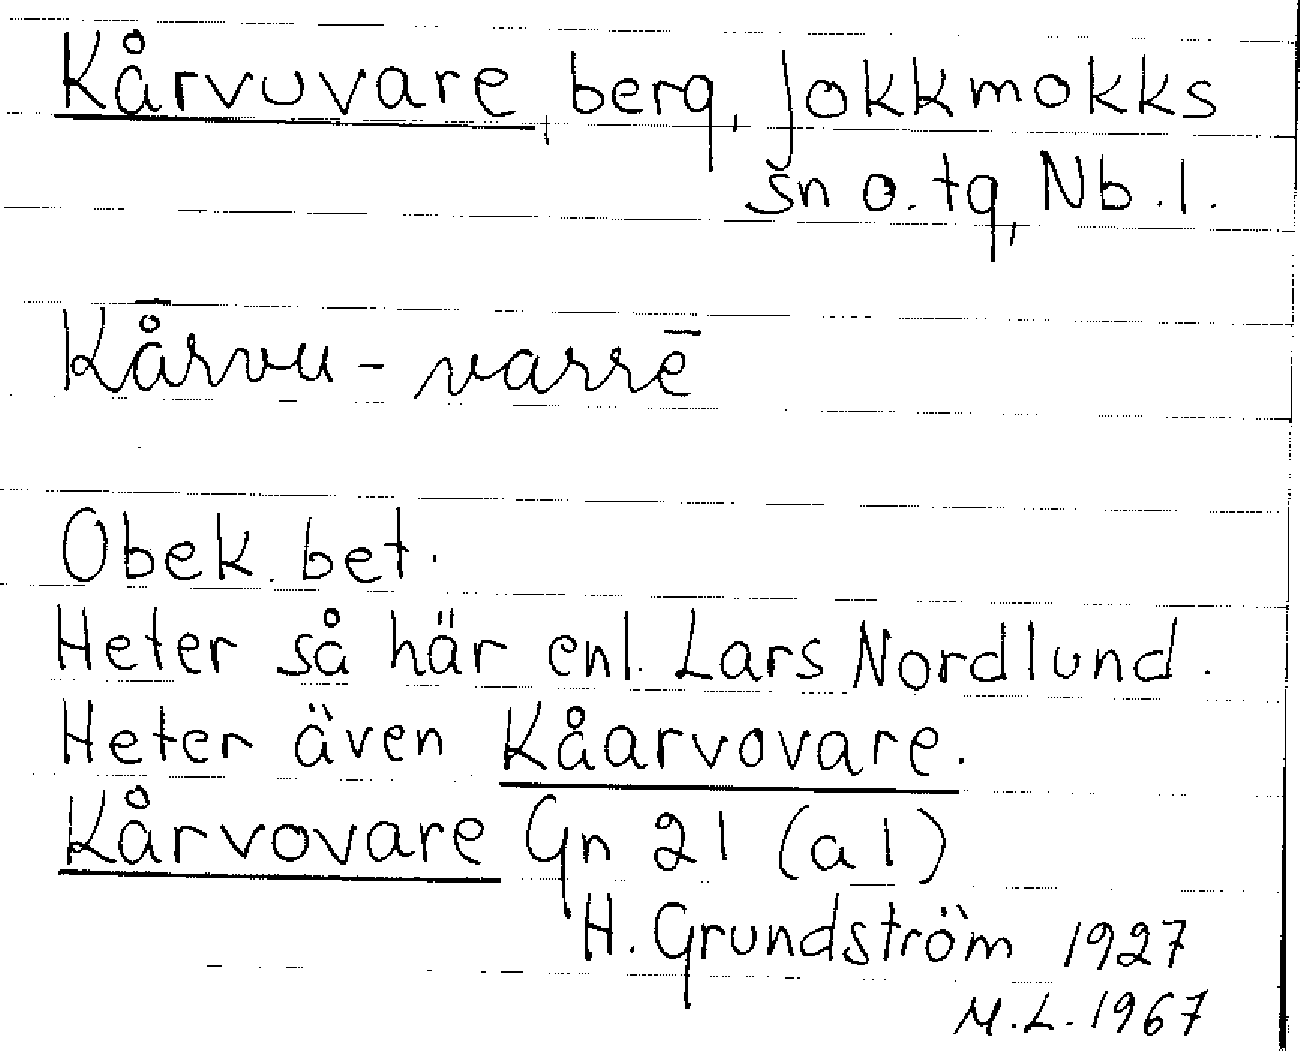 Kårvuvare, berg, Jokkmokks
sn o. tg, Nb. l.
Kå̄rvu-varrē
Obek. bet.
Heter så här enl. Lars Nordlund.
Heter även Kåarvovare.
Kårvovare Gn 21 (a1)
H. Grundström 1927
M.L. 1967